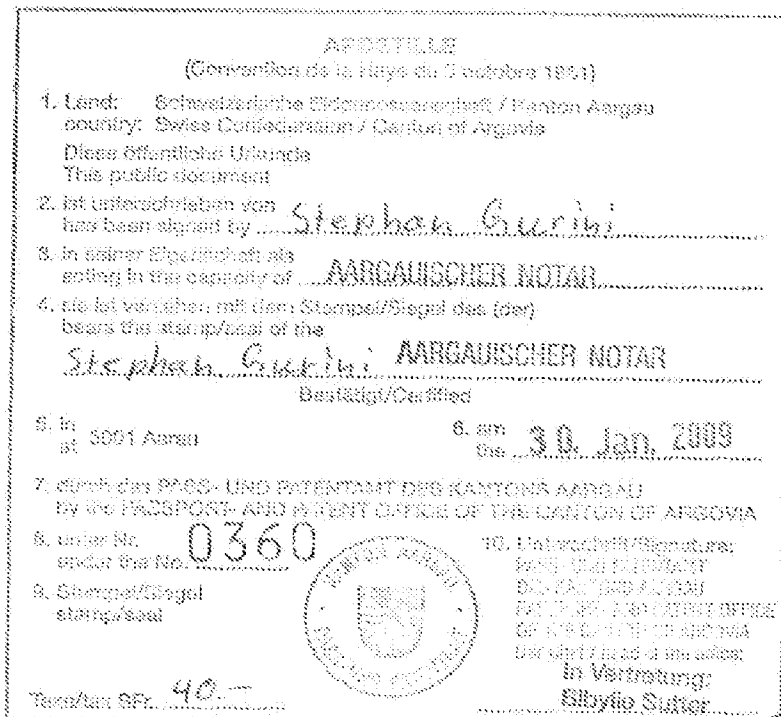 APOSTILLE
(Convention de la Haye du 5 octobre 1961)
1. Land: Schweizerische Eidgenossenschaft / Kanton Aargau
country: Swiss Confederation / Canton of Argovia
Diese öffentliche Urkunde
This public document
2. ist unterschrieben von
has been signed by Stephan Gurini
3. in seiner Eigenschaft als
acting in the capacity of AARGAUISCHER NOTAR
4. sie ist versehen mit dem Stempel/Siegel des (der)
bears the stamp/seal of the
Stephan Gurini AARGAUISCHER NOTAR
Bestätigt/Certified
5. in
at 5001 Aarau
6. am
the 30. Jan. 2009
7. durch das PASS- UND PATENTAMT DES KANTONS AARGAU
by the PASSPORT- AND PATENT OFFICE OF THE CANTON OF ARGOVIA
8. unter Nr.
under the No. 0360
9. Stempel/Siegel
stamp/seal
KANTON AARGAU
10. Unterschrift/Signature:
PASS- UND PATENTAMT
DES KANTONS AARGAU
PASSPORT- AND PATENT OFFICE
OF THE CANTON OF ARGOVIA
In Vertretung:
Sutter
Taxe/tax SFr. 40.–